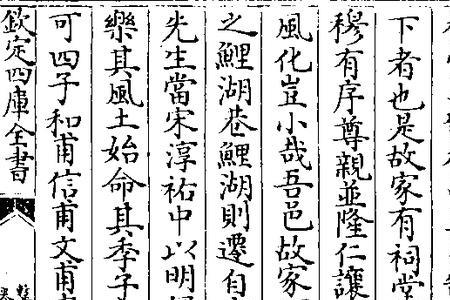 下者也是故家有祠堂
穆有序尊親並隆仁讓
風化豈小哉吾邑故家
之鯉湖巷鯉湖則遷自
先生當宋淳祐中以明
樂其風土始命其季子
可四子和甫信甫文甫
欽定四庫全書